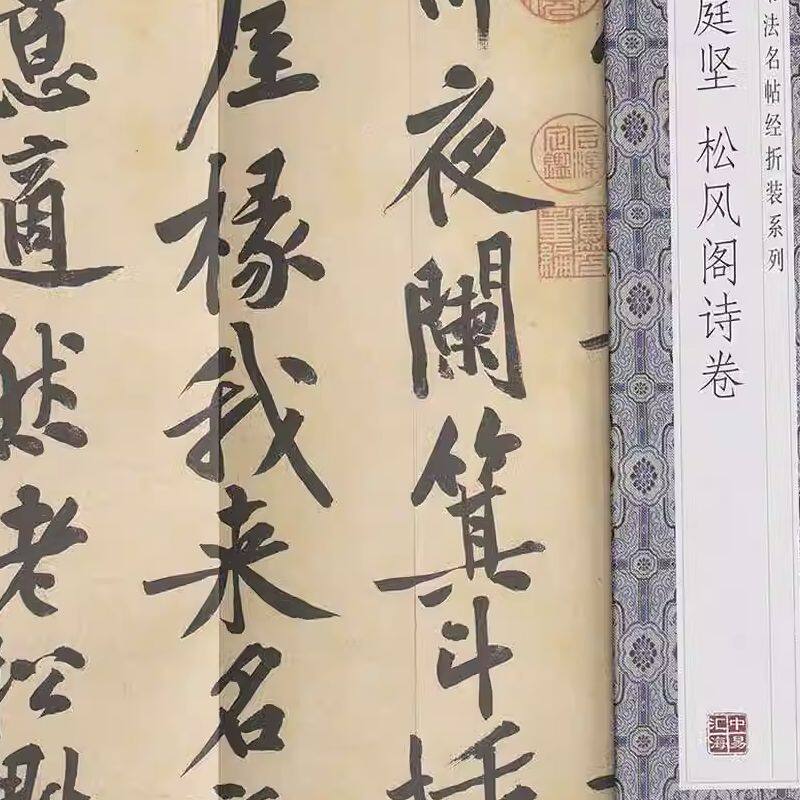 法名帖经折装系列
庭坚 松风阁诗卷
中易汇海
夜阑箕斗插
屋椽我来名
意適然老松魁